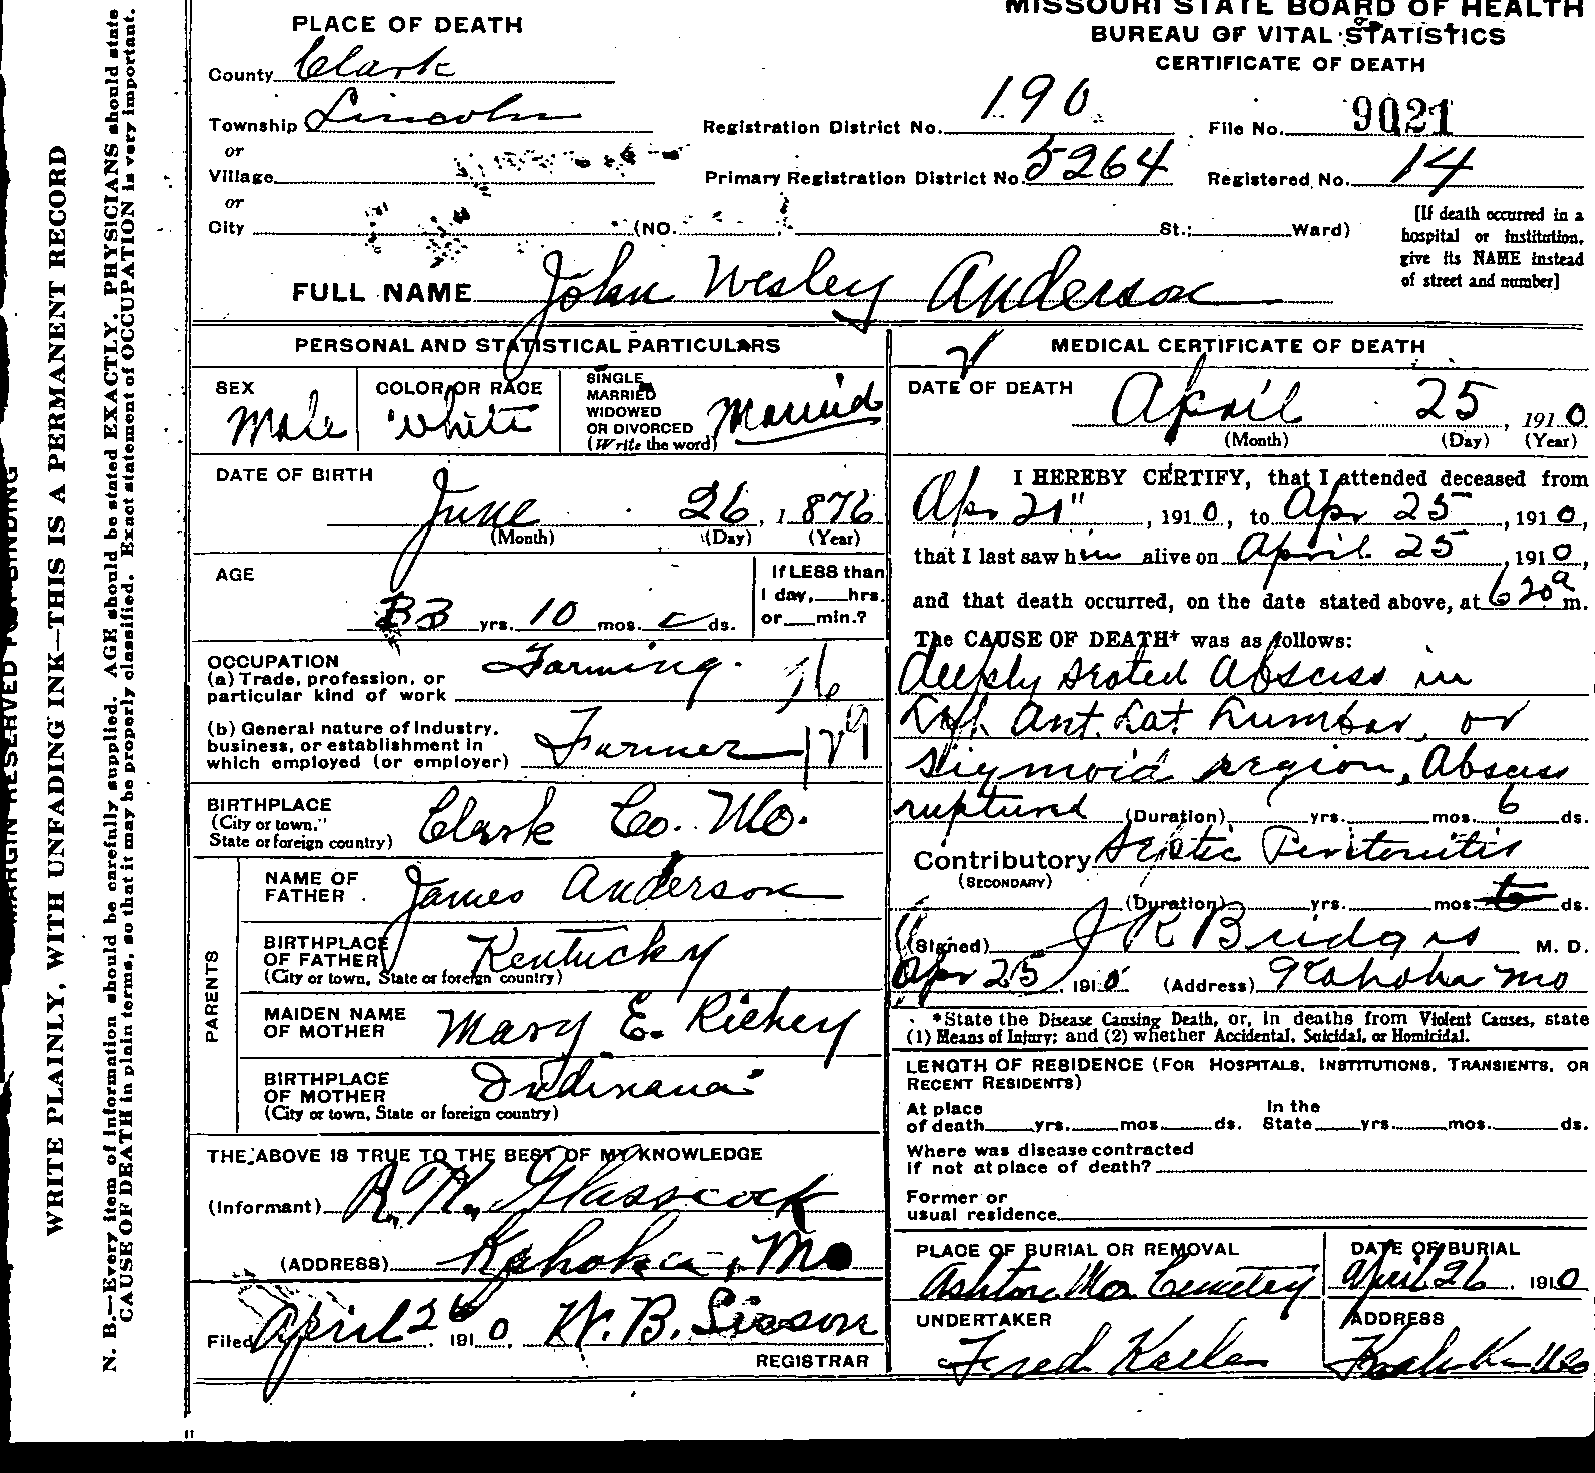 MISSOURI STATE BOARD OF HEALTH
BUREAU OF VITAL STATISTICS
CERTIFICATE OF DEATH
PLACE OF DEATH
County Clark
Township Lincoln
or
Village
or
City (NO. St.; Ward)
Registration District No. 190
File No. 9021
Primary Registration District No. 5264
Registered No. 14
[If death occurred in a
hospital or institution,
give its NAME instead
of street and number]
FULL NAME John Wesley Anderson
PERSONAL AND STATISTICAL PARTICULARS
SEX
Male
COLOR OR RACE
White
SINGLE
MARRIED
WIDOWED
OR DIVORCED
(Write the word)
Married
DATE OF BIRTH
June 26, 1876
(Month) (Day) (Year)
AGE
33 yrs. 10 mos. ds.
If LESS than
1 day,___hrs.
or___min.?
OCCUPATION
(a) Trade, profession, or
particular kind of work Farming
(b) General nature of Industry,
business, or establishment in
which employed (or employer) Farmer
BIRTHPLACE
(City or town,
State or foreign country)
Clark Co. Mo.
PARENTS
NAME OF
FATHER James Anderson
BIRTHPLACE
OF FATHER Kentucky
(City or town, State or foreign country)
MAIDEN NAME
OF MOTHER Mary E. Richey
BIRTHPLACE
OF MOTHER Indiana
(City or town, State or foreign country)
THE ABOVE IS TRUE TO THE BEST OF MY KNOWLEDGE
(Informant) Glasscock
(ADDRESS) Kahoka, Mo
Filed April 26 1910, W. B. Sisson
REGISTRAR
MEDICAL CERTIFICATE OF DEATH
DATE OF DEATH April 25, 1910
(Month) (Day) (Year)
I HEREBY CERTIFY, that I attended deceased from
Apr 21", 1910, to Apr 25, 1910,
that I last saw him alive on April 25, 1910,
and that death occurred, on the date stated above, at 620a m.
The CAUSE OF DEATH* was as follows:
deeply seated Abscess in
Left Ant. Lat. Lumbar, or
Sigmoid region, Abscess
ruptured (Duration) yrs. mos. 6 ds.
Contributory Septic Peritonitis
(SECONDARY)
(Duration) yrs. mos. ds.
(Signed) J R Bridges M. D.
Apr 25, 1910 (Address) Kahoka Mo
*State the Disease Causing Death, or, in deaths from Violent Causes, state
(1) Means of Injury; and (2) whether Accidental, Suicidal, or Homicidal.
LENGTH OF RESIDENCE (FOR HOSPITALS, INSTITUTIONS, TRANSIENTS, OR
RECENT RESIDENTS)
At place
of death___yrs.___mos.___ds.
In the
State___yrs.___mos.___ds.
Where was disease contracted
if not at place of death?
Former or
usual residence
PLACE OF BURIAL OR REMOVAL
Ashton Mo Cemetery
DATE OF BURIAL
April 26, 1910
UNDERTAKER
Fred
ADDRESS
MARGIN RESERVED FOR BINDING
WRITE PLAINLY, WITH UNFADING INK—THIS IS A PERMANENT RECORD
N. B.—Every item of information should be carefully supplied. AGE should be stated EXACTLY. PHYSICIANS should state
CAUSE OF DEATH in plain terms, so that it may be properly classified. Exact statement of OCCUPATION is very important.